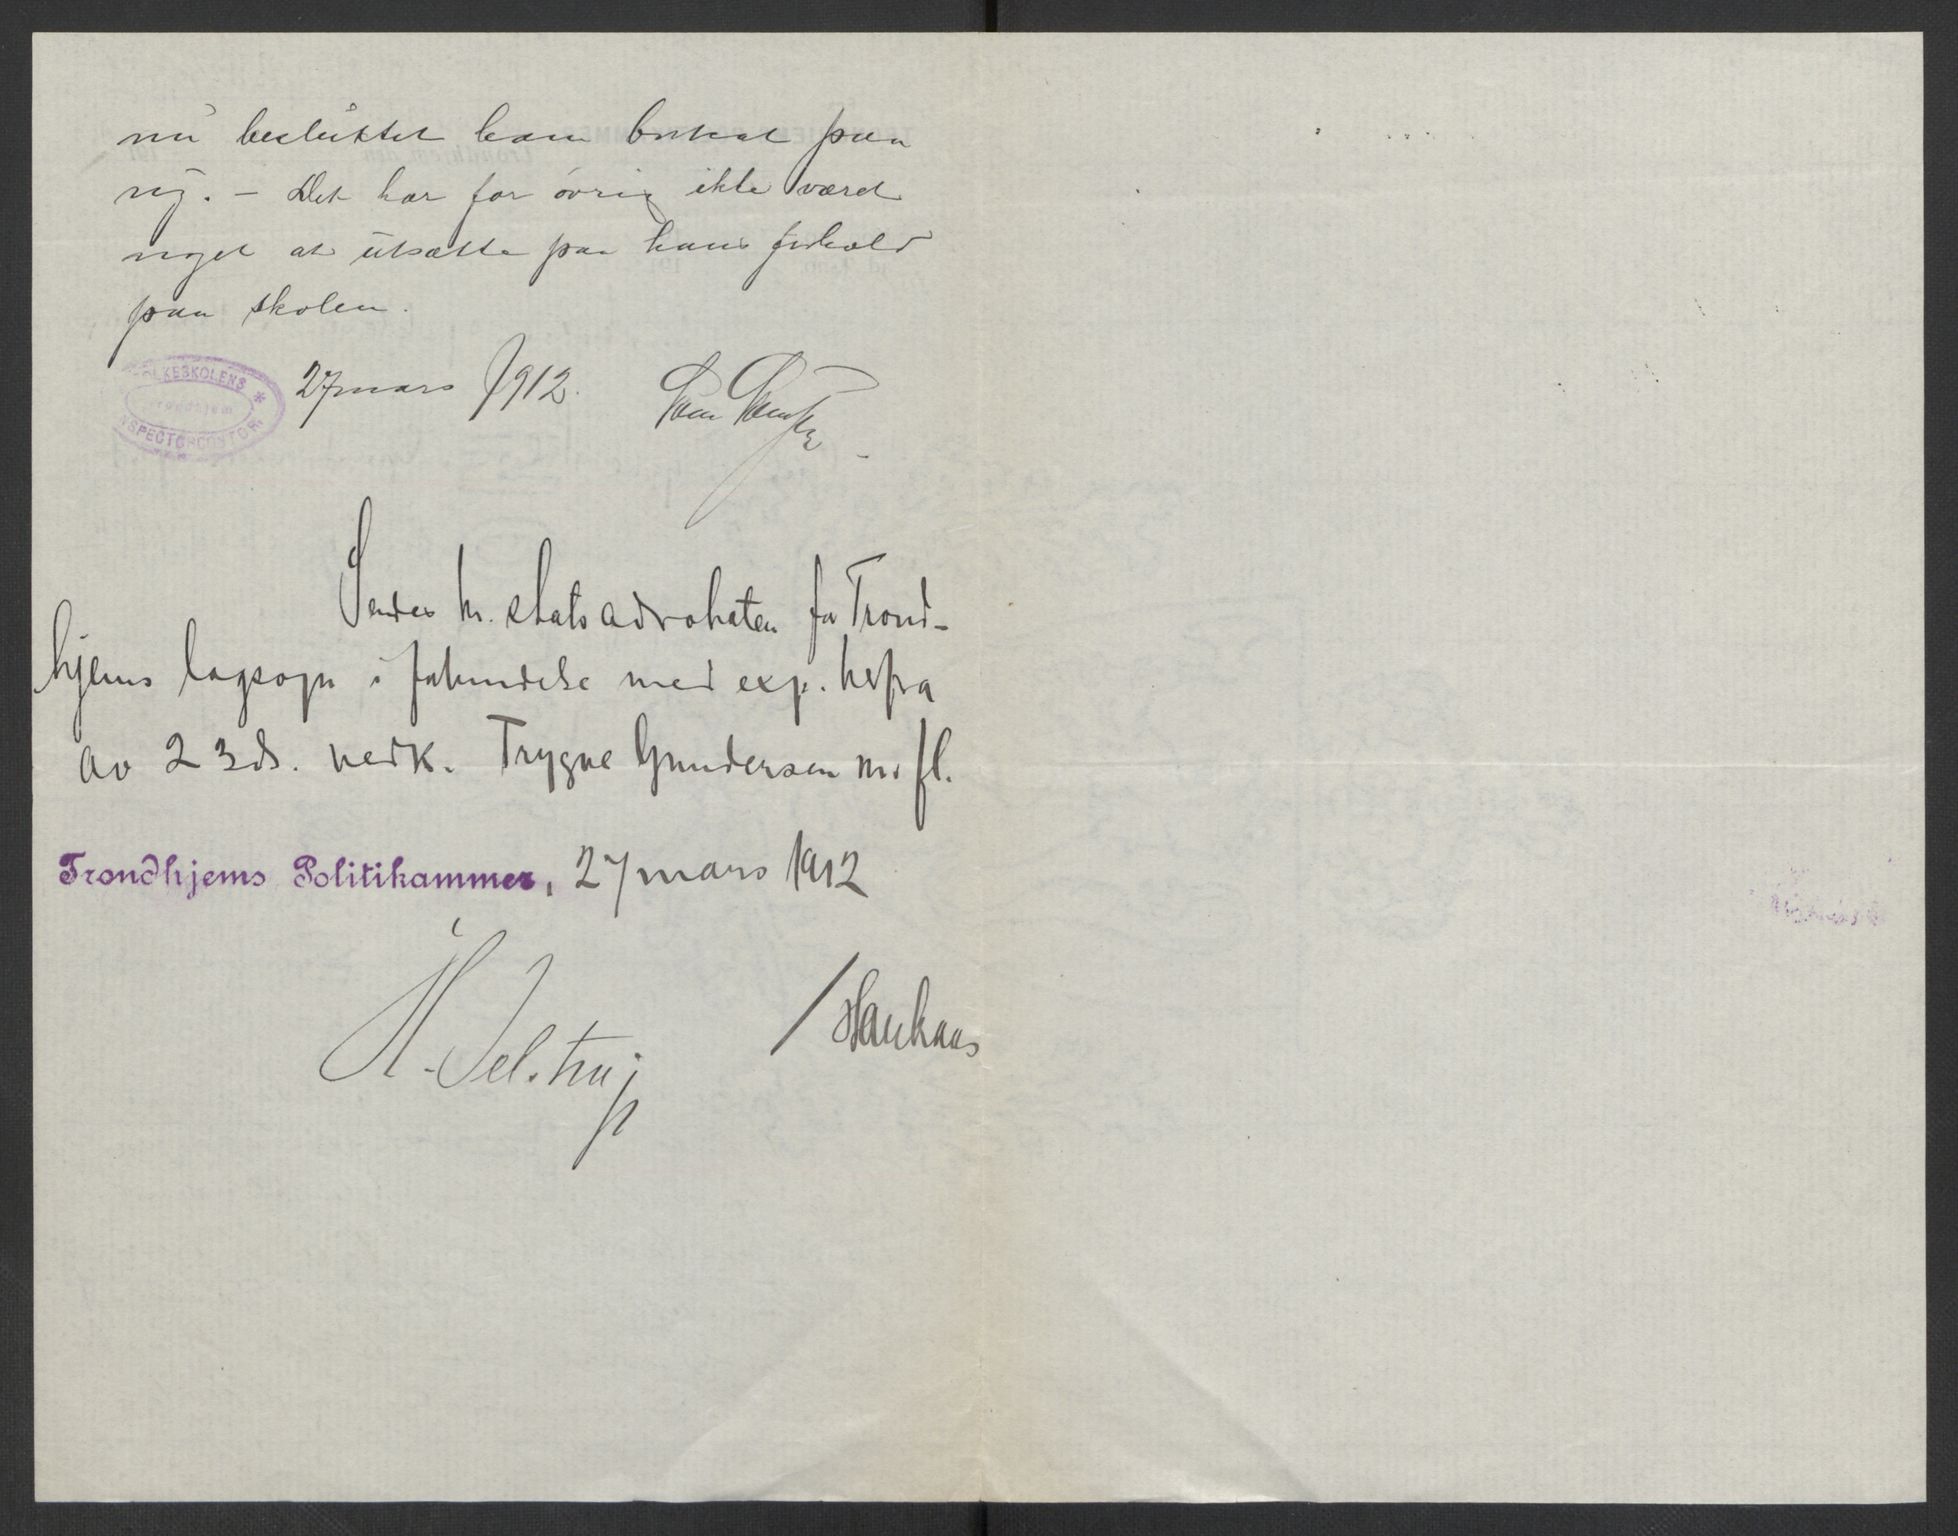 nu besluttet ham bortsat paa
ny. – Det har for øvrig ikke været
noget at utsætte paa hans forhold
paa skolen.
FOLKESKOLENS
Trondhjem
INSPECTORCONTOR
27 mars 1912.
Sendes hr. statsadvokaten for Trond-
hjems lagsogn i forbindelse med exp. herfra
av 23 ds. vedk. Trygve Gundersen m. fl.
Trondhjems Politikammer, 27 mars 1912
H. Selstrup
/ Haukaas